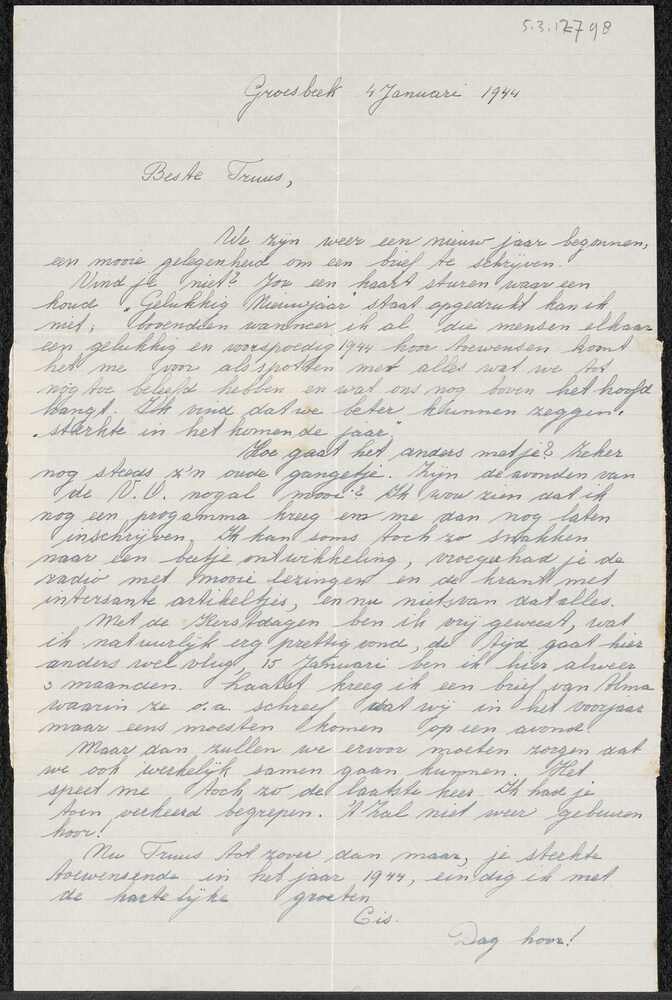 5.3.12798
Groesbeek 4 Januari 1944
Beste Truus,
We zijn weer een nieuw jaar begonnen,
een mooie gelegenheid om een brief te schrijven.
Vind je niet? Jou een kaart sturen waar een
koud "Gelukkig Nieuwjaar" staat opgedrukt kan ik
niet, bovendien wanneer ik al die mensen elkaar
een gelukkig en voorspoedig 1944 hoor toewensen komt
het me voor als spotten met alles wat we tot
nog toe beleefd hebben en wat ons nog boven het hoofd
hangt. Ik vind dat we beter kunnen zeggen,
"sterkte in het komende jaar".
Hoe gaat het anders met je? Zeker
nog steeds z'n oude gangetje. Zijn de avonden van
de V.U. nogal mooi? Ik zou zien dat ik
nog een progamma kreeg en me dan nog laten
inschrijven. Ik kan soms toch zo snakken
naar een beetje ontwikkeling, vroeger had je de
radio met mooie lezingen en de krant met
intersante artikeltjes, en nu niets van dat alles.
Met de Kerstdagen ben ik vrij geweest, wat
ik natuurlijk erg prettig vond, de tijd gaat hier
anders wel vlug, 15 Januari ben ik hier alweer
3 maanden. Laatst kreeg ik een brief van Alma
waarin ze o.a. schreef dat wij in het voorjaar
maar eens moesten komen op een avond.
Maar dan zullen we ervoor moeten zorgen dat
we ook werkelijk samen gaan kunnen. Het
speet me toch zo de laatste keer. Ik had je
toen verkeerd begrepen. 't Zal niet weer gebeuren
hoor!
Nu Truus tot zover dan maar, je sterkte
toewensende in het jaar 1944, eindig ik met
de hartelijke groeten
Cis.
Dag hoor!